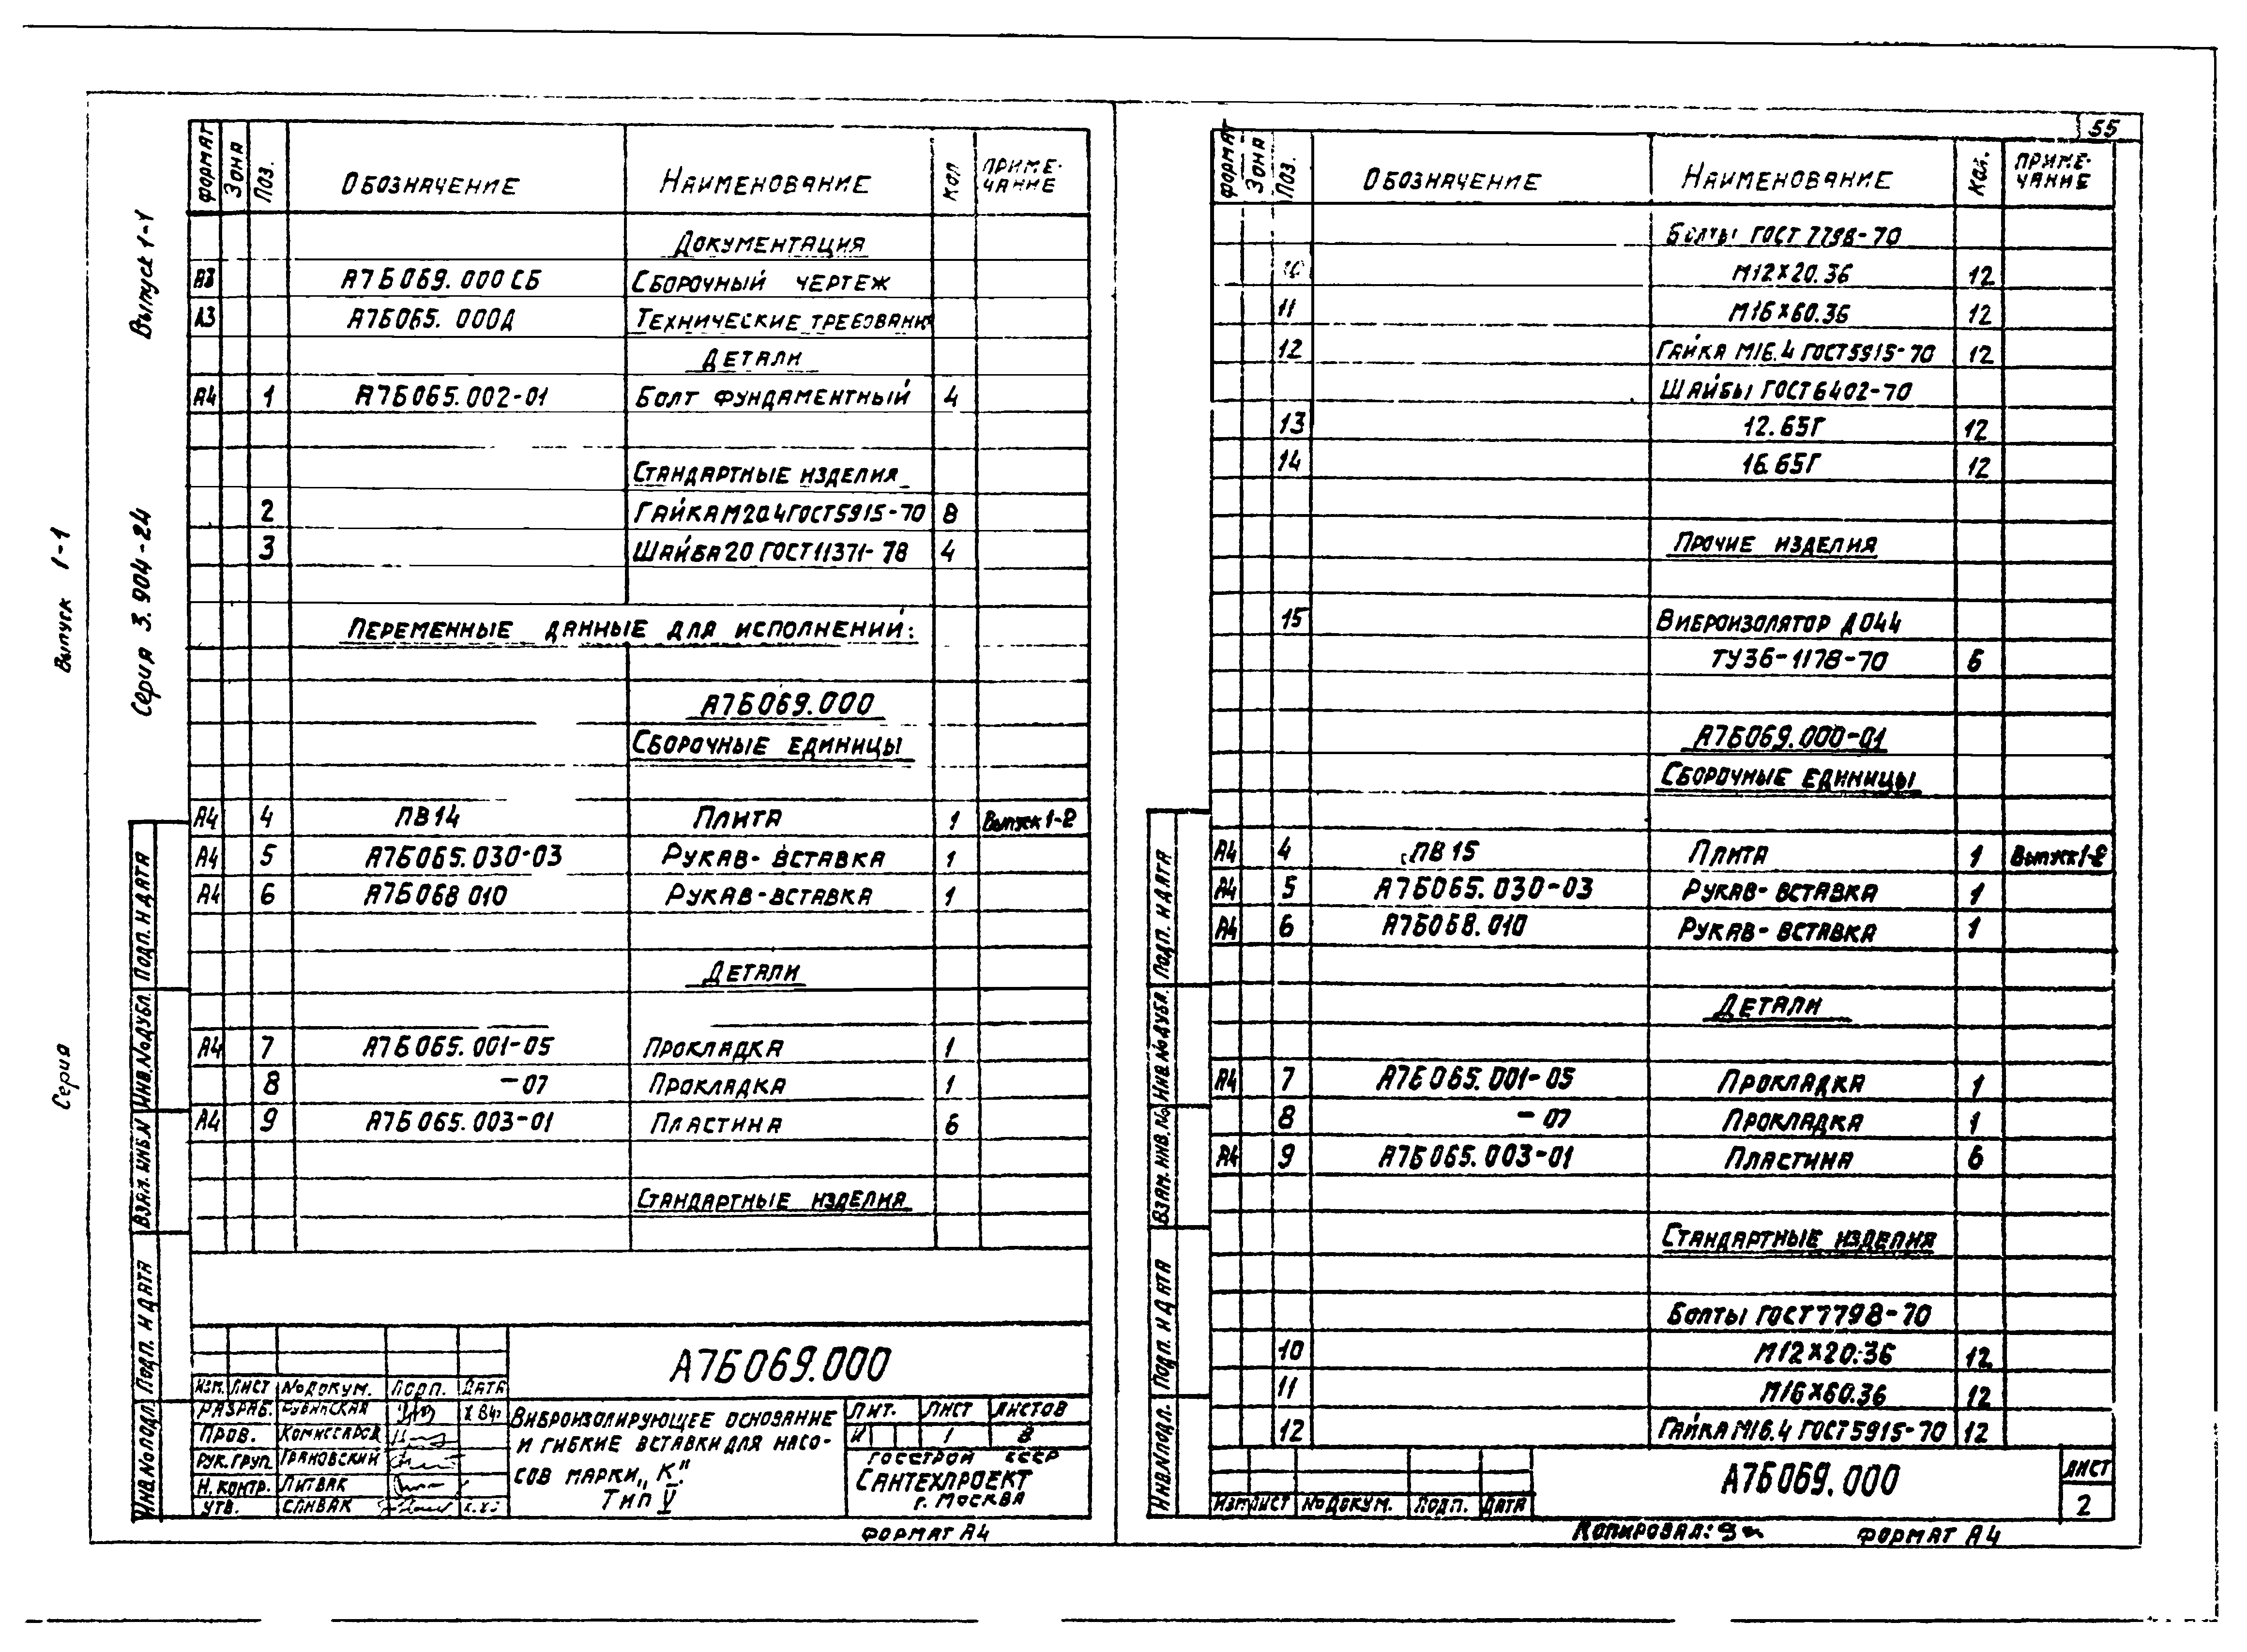 55
Выпуск 1-1
Серия 3.904-24
Выпуск 1-1
Серия
ФОРМАТ Зона Поз. ОБОЗНАЧЕНИЕ НАИМЕНОВАНИЕ КОЛ ПРИМЕ-
ЧАНИЕ
ДОКУМЕНТАЦИЯ
А3 А7Б069.000 СБ СБОРОЧНЫЙ ЧЕРТЕЖ
А3 А7Б065.000Д ТЕХНИЧЕСКИЕ ТРЕБОВАНИЯ
ДЕТАЛИ
А4 1 А7Б065.002-01 БОЛТ ФУНДАМЕНТНЫЙ 4
СТАНДАРТНЫЕ ИЗДЕЛИЯ
2 ГАЙКА М20.4 ГОСТ 5915-70 8
3 ШАЙБА 20 ГОСТ 11371-78 4
ПЕРЕМЕННЫЕ ДАННЫЕ ДЛЯ ИСПОЛНЕНИЙ:
А7Б069.000
СБОРОЧНЫЕ ЕДИНИЦЫ
А4 4 ПВ14 ПЛИТА 1 Выпуск 1-2
А4 5 А7Б065.030-03 РУКАВ-ВСТАВКА 1
А4 6 А7Б068 010 РУКАВ-ВСТАВКА 1
ДЕТАЛИ
А4 7 А7Б065.001-05 ПРОКЛАДКА 1
8 -07 ПРОКЛАДКА 1
А4 9 А7Б065.003-01 ПЛАСТИНА 6
СТАНДАРТНЫЕ ИЗДЕЛИЯ
ПОДП. И ДАТА
ИНВ.№ДУБЛ.
ВЗАМ.ИНВ.№
ПОДП. И ДАТА
ИНВ.№ПОДЛ.
А7Б069.000
ИЗМ. ЛИСТ №ДОКУМ. ПОДП. ДАТА
РАЗРАБ.
ПРОВ. КОМИССАРОВ
РУК.ГРУП. ГРАНОВСКИЙ
Н.КОНТР. ЛИТВАК
УТВ. СПИВАК
ВИБРОИЗОЛИРУЮЩЕЕ ОСНОВАНИЕ
И ГИБКИЕ ВСТАВКИ ДЛЯ НАСО-
СОВ МАРКИ „К“.
ТИП V
ЛИТ. ЛИСТ ЛИСТОВ
И 1 8
ГОССТРОЙ СССР
САНТЕХПРОЕКТ
г. МОСКВА
ФОРМАТ А4
ФОРМАТ Зона Поз. ОБОЗНАЧЕНИЕ НАИМЕНОВАНИЕ Кол. ПРИМЕ-
ЧАНИЕ
БОЛТЫ ГОСТ 7798-70
10 М12×20.36 12
11 М16×60.36 12
12 ГАЙКА М16.4 ГОСТ 5915-70 12
ШАЙБЫ ГОСТ 6402-70
13 12.65Г 12
14 16.65Г 12
ПРОЧИЕ ИЗДЕЛИЯ
15 ВИБРОИЗОЛЯТОР ДО44
ТУ36-1178-70 6
А7Б069.000-01
СБОРОЧНЫЕ ЕДИНИЦЫ
А4 4 ПВ15 ПЛИТА 1 Выпуск 1-2
А4 5 А7Б065.030-03 РУКАВ-ВСТАВКА 1
А4 6 А7Б068.010 РУКАВ-ВСТАВКА 1
ДЕТАЛИ
А4 7 А7Б065.001-05 ПРОКЛАДКА 1
8 -07 ПРОКЛАДКА 1
А4 9 А7Б065.003-01 ПЛАСТИНА 6
СТАНДАРТНЫЕ ИЗДЕЛИЯ
БОЛТЫ ГОСТ 7798-70
10 М12×20.36 12
11 М16×60.36 12
12 ГАЙКА М16.4 ГОСТ 5915-70 12
ПОДП. И ДАТА
ИНВ.№ДУБЛ.
ВЗАМ.ИНВ.№
ПОДП. И ДАТА
ИНВ.№ПОДЛ.
А7Б069.000
ЛИСТ
2
ИЗМ ЛИСТ №ДОКУМ. ПОДП. ДАТА
КОПИРОВАЛ:
ФОРМАТ А4